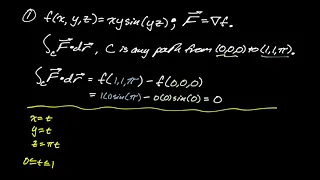 ① f(x,y,z)=xysin(yz); F⃗=∇f.
∫_C F⃗·dr⃗, C is any path from (0,0,0) to (1,1,π).
∫_C F⃗·dr⃗ = f(1,1,π) - f(0,0,0)
= 1·1·sin(π) - 0(0)sin(0) = 0
x=t
y=t
z=πt
0≤t≤1